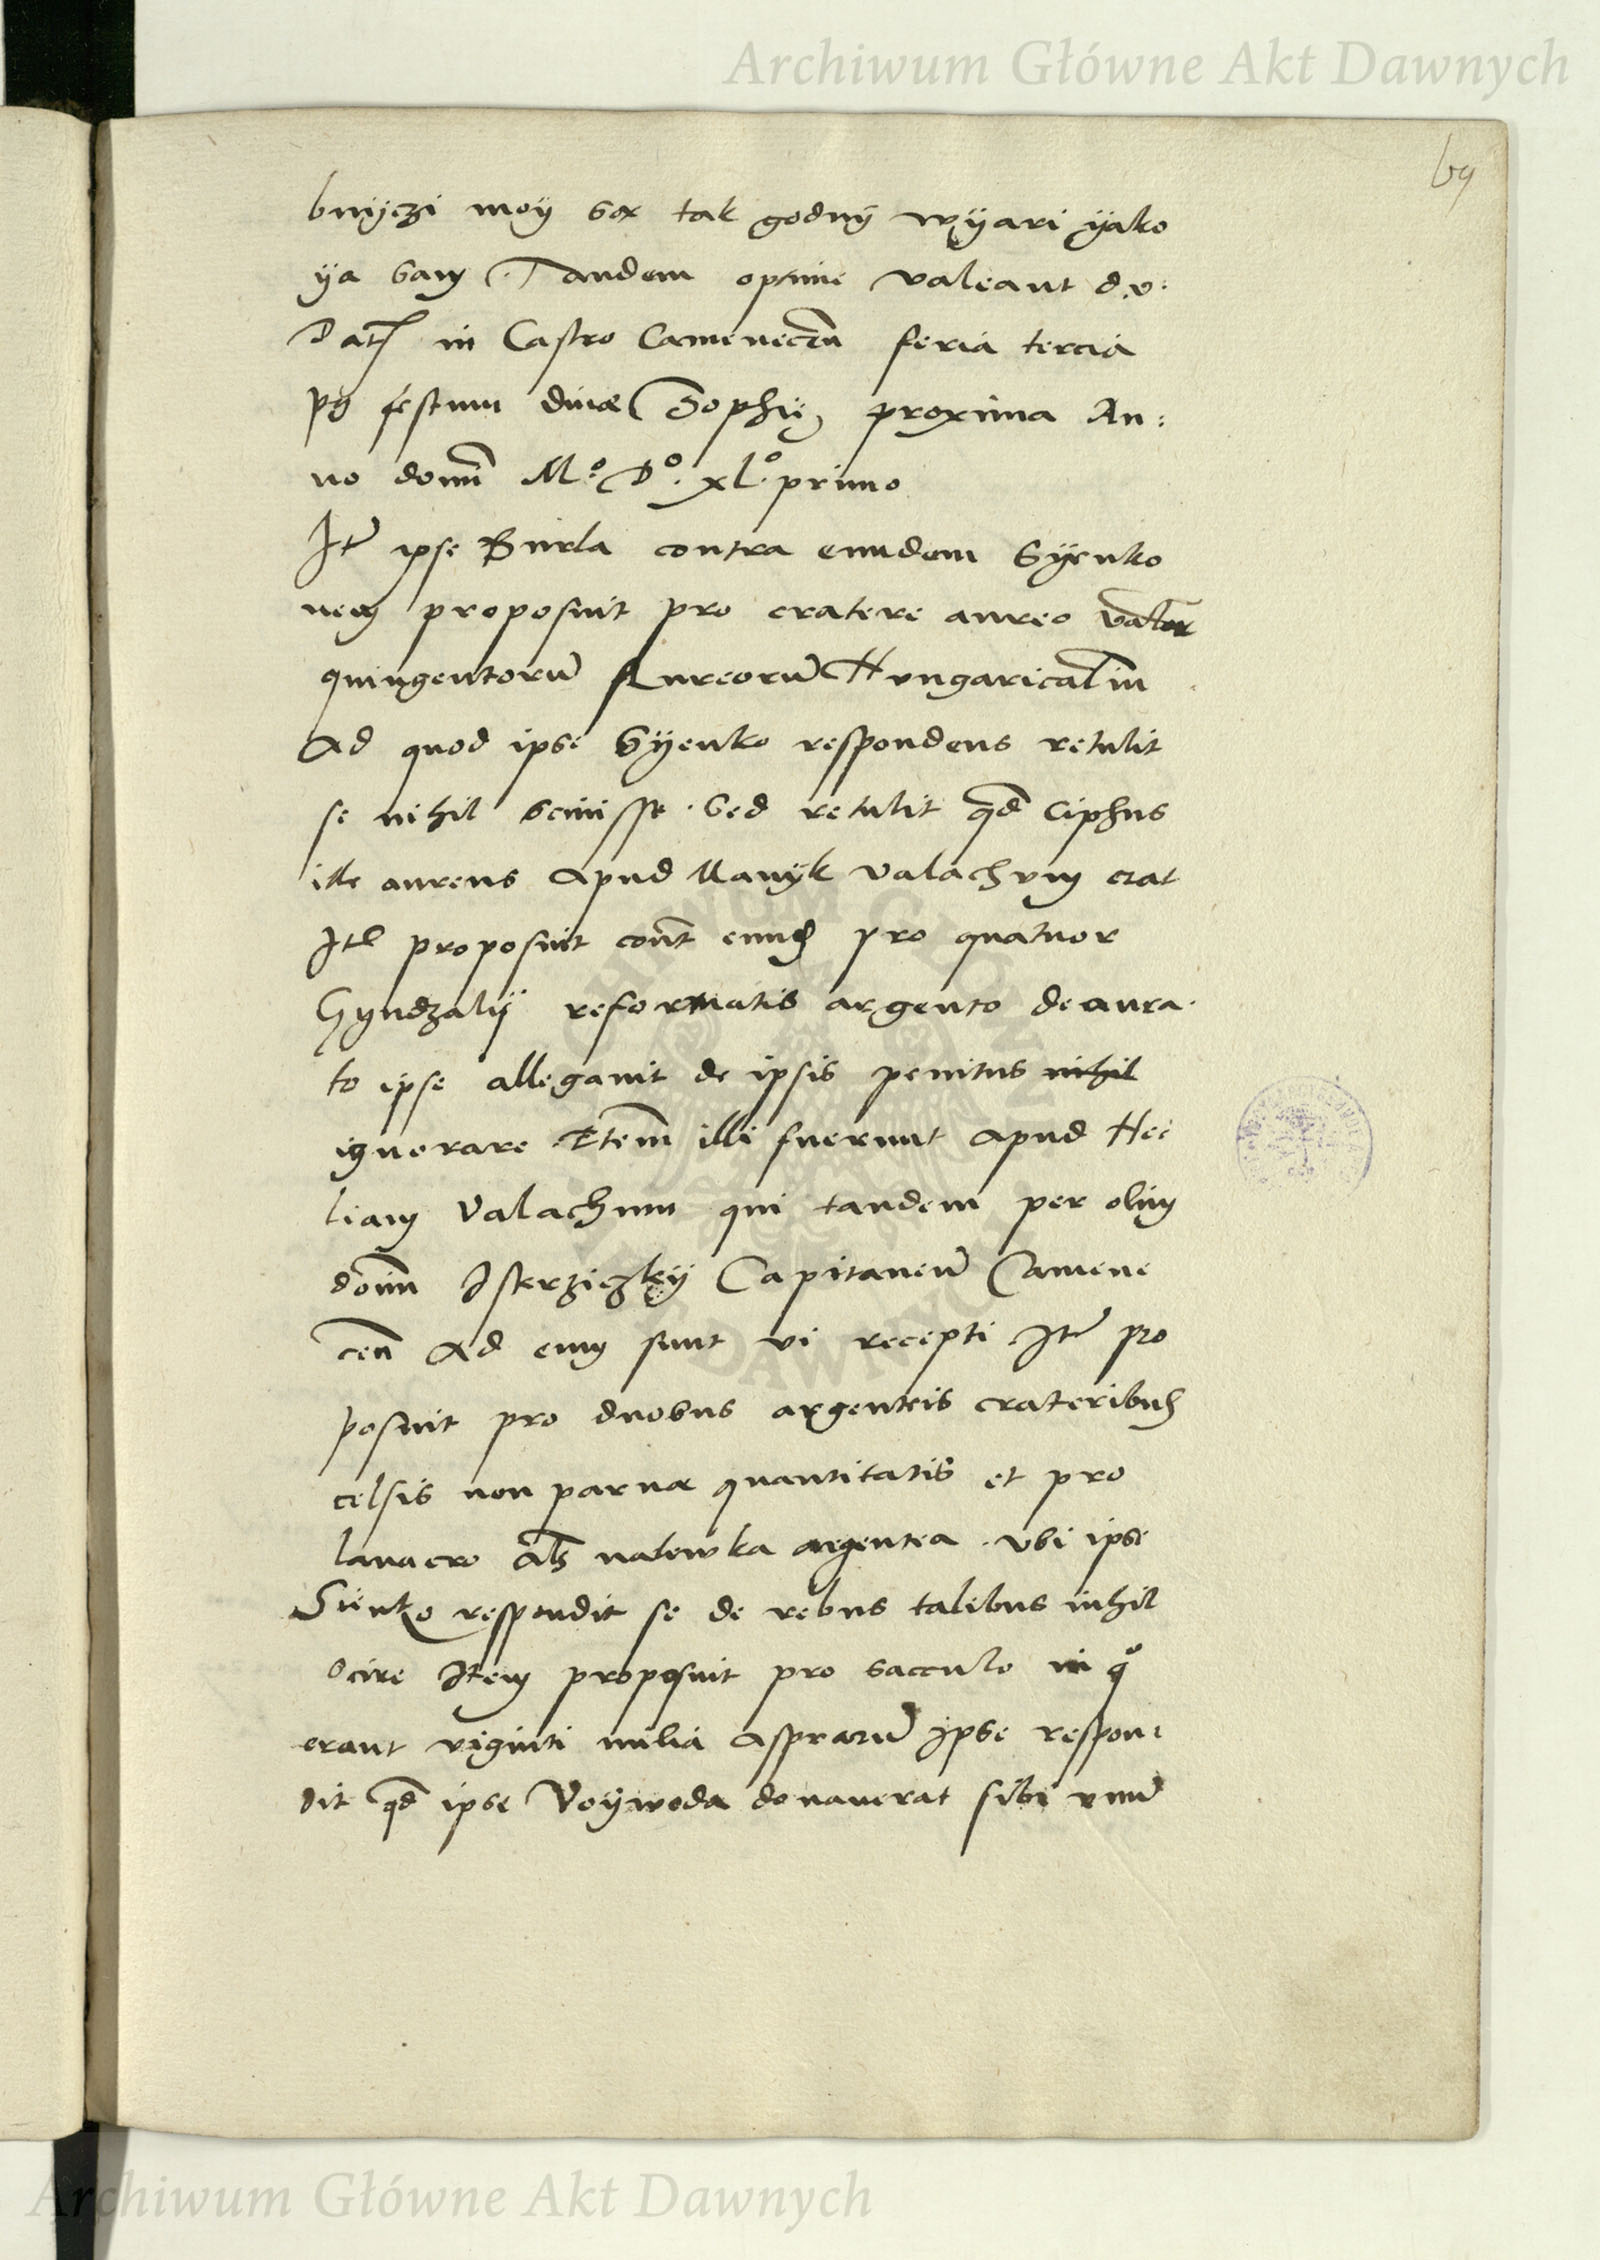 Archiwum Główne Akt Dawnych
69
bnyczi moy sox tak godny wyari yako
ya sam. Tandem optime valeant d.v:
Dat in Castro Camenecen feria tercia
pq festum divae Sophiy proxima An:
no domi M.o D.o xl.o primo
Ite ipse Burla contra eundem Syenko
nem proposuit pro cratere aureo valor
quingentoru Aureoru Hungaricaliu
Ad quod ipse Syenko respondens retulit
se nihil scivisse. Sed retulit qd ciphus
ille aureus apud Manyk valachum erat
Ite proposuit cont eund pro quatuor
Gyndzaly reformatis argento deaura
to ipse allegavit de ipsis penitus nihil
ignorare Item illi fuerunt apud Hee
liam Valachum qui tandem per olim
domi Isterziczky Capitaneu Camene
cen Ad eum sunt vi recepti Ite pro
posuit pro duobus argenteis crateribus
celsis non parvae quantitatis et pro
lavacro als nalewka argentea. vbi ipse
Sienko respondit se de rebus talibus nihil
scire Item proposuit pro sacculo in qo
erant viginti milia aspraru ipse respon:
dit qd ipse Voywoda donaverat sibi vnu
Archiwum Główne Akt Dawnych